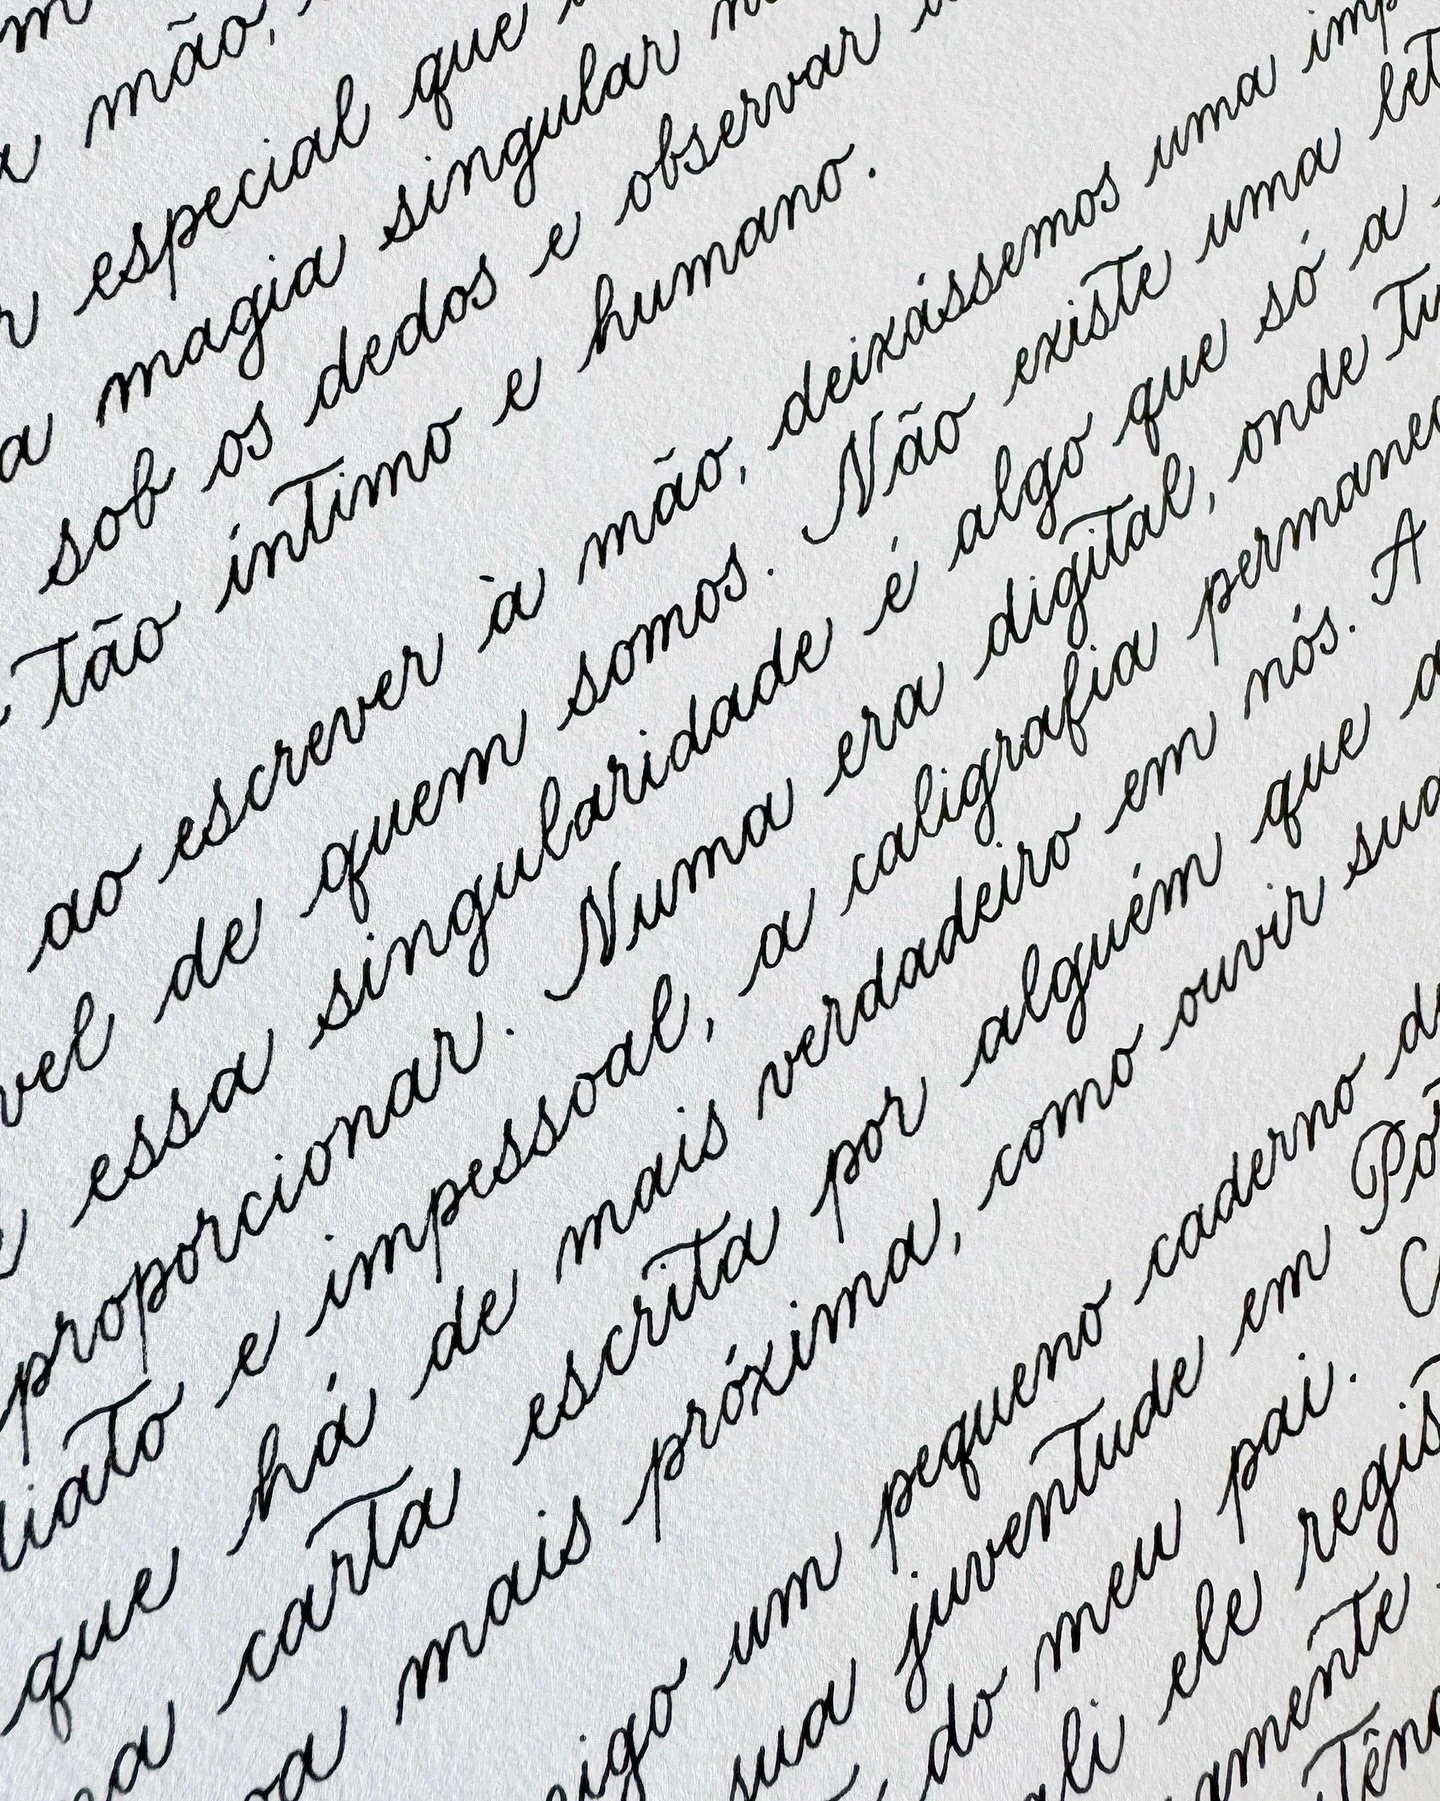 mão,
especial que
magia singular
sob os dedos e observar
tão íntimo e humano.
ao escrever à mão, deixássemos uma
de quem somos. Não existe uma
essa singularidade é algo que só a
proporcionar. Numa era digital, onde
e impessoal, a caligrafia
que há de mais verdadeiro em nós. A
carta escrita por alguém que
mais próxima, como ouvir
um pequeno caderno
sua juventude em
do meu pai.
ele